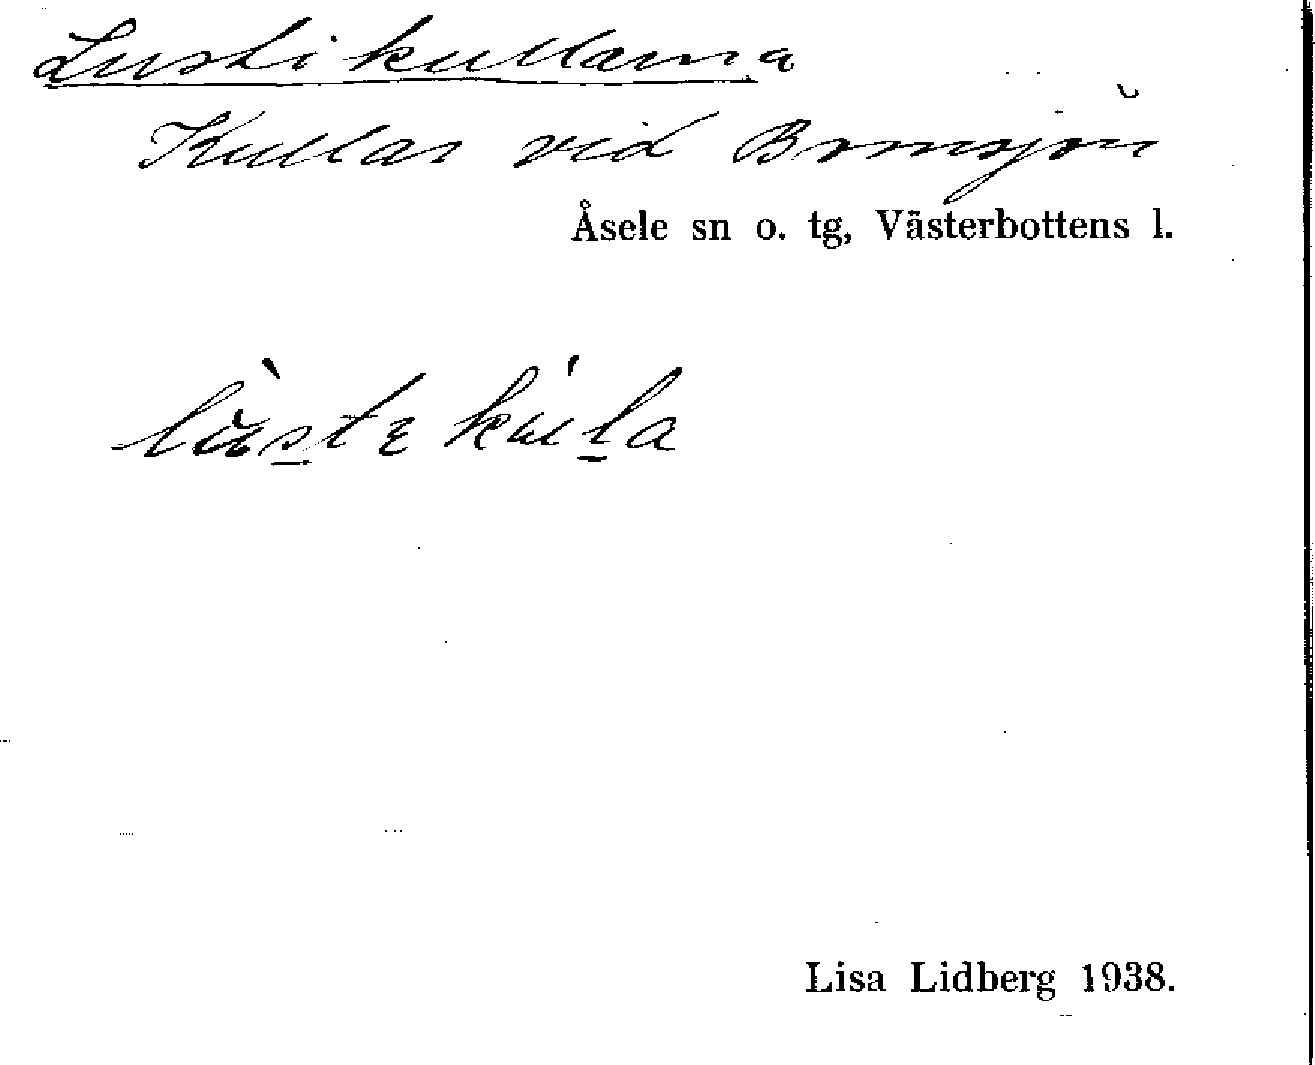 Lustikullarna
Kullar vid Bomsjön
Åsele sn o. tg, Västerbottens l.
Lisa Lidberg 1938.